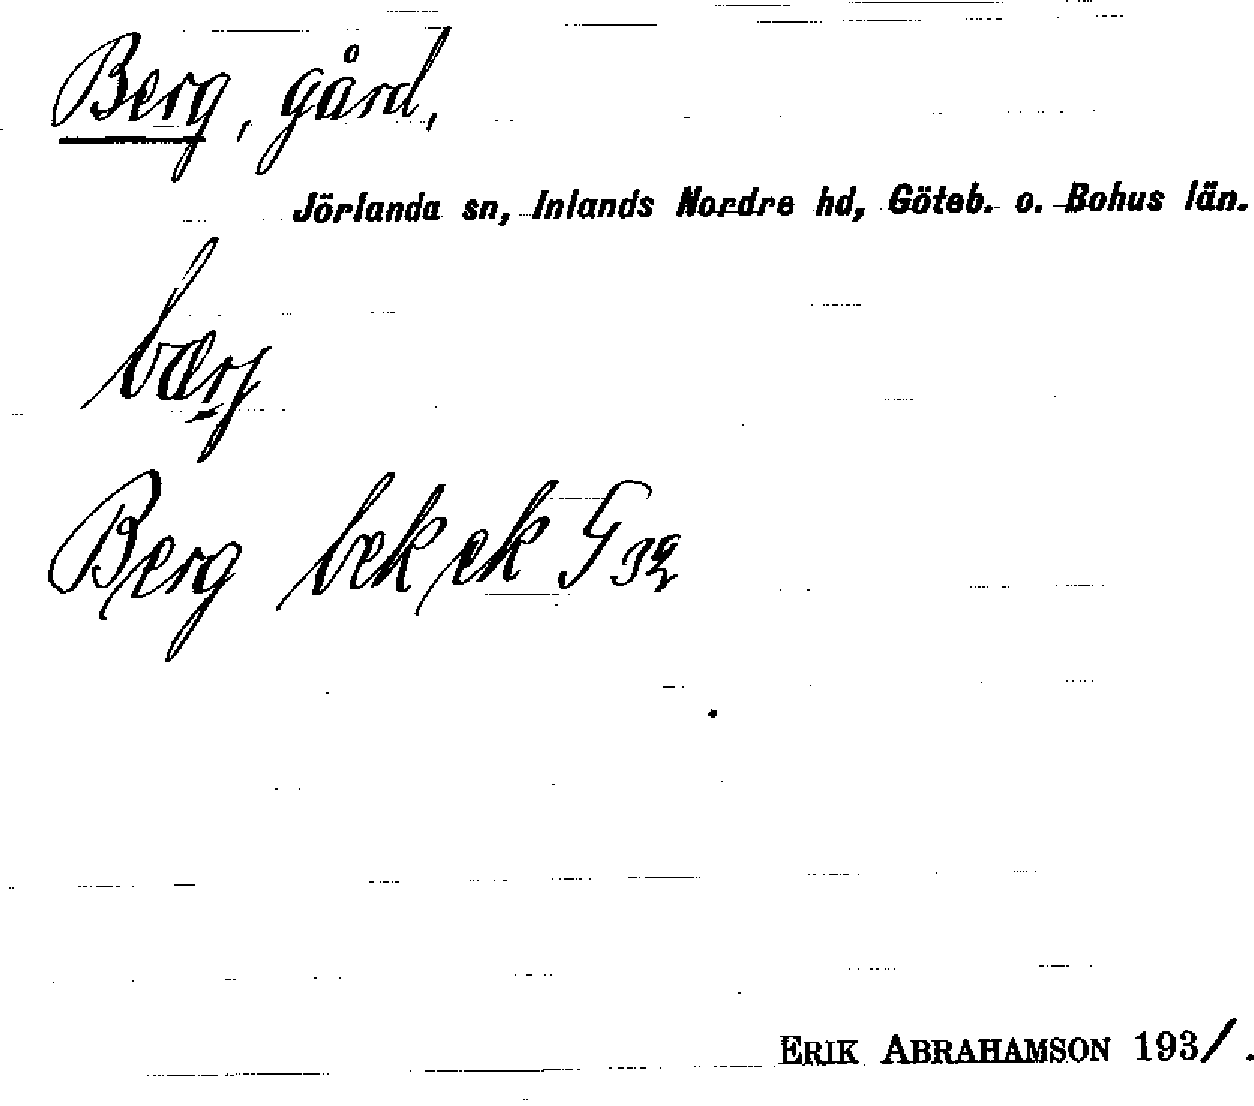 Berg, gård,
Jörlanda sn, Inlands Nordre hd, Göteb. o. Bohus län.
bærj
Berg bek ek G 32
ERIK ABRAHAMSON 1931.